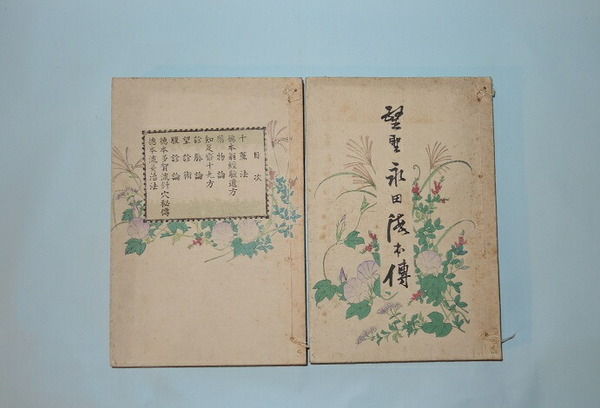 醫聖永田德本傳
目次
十薰法
德本翁經驗遺方
藥物論
知足齋十九方
診脉論
望診術
腹診論
德本多賀流針穴秘傳
德本流灸治法